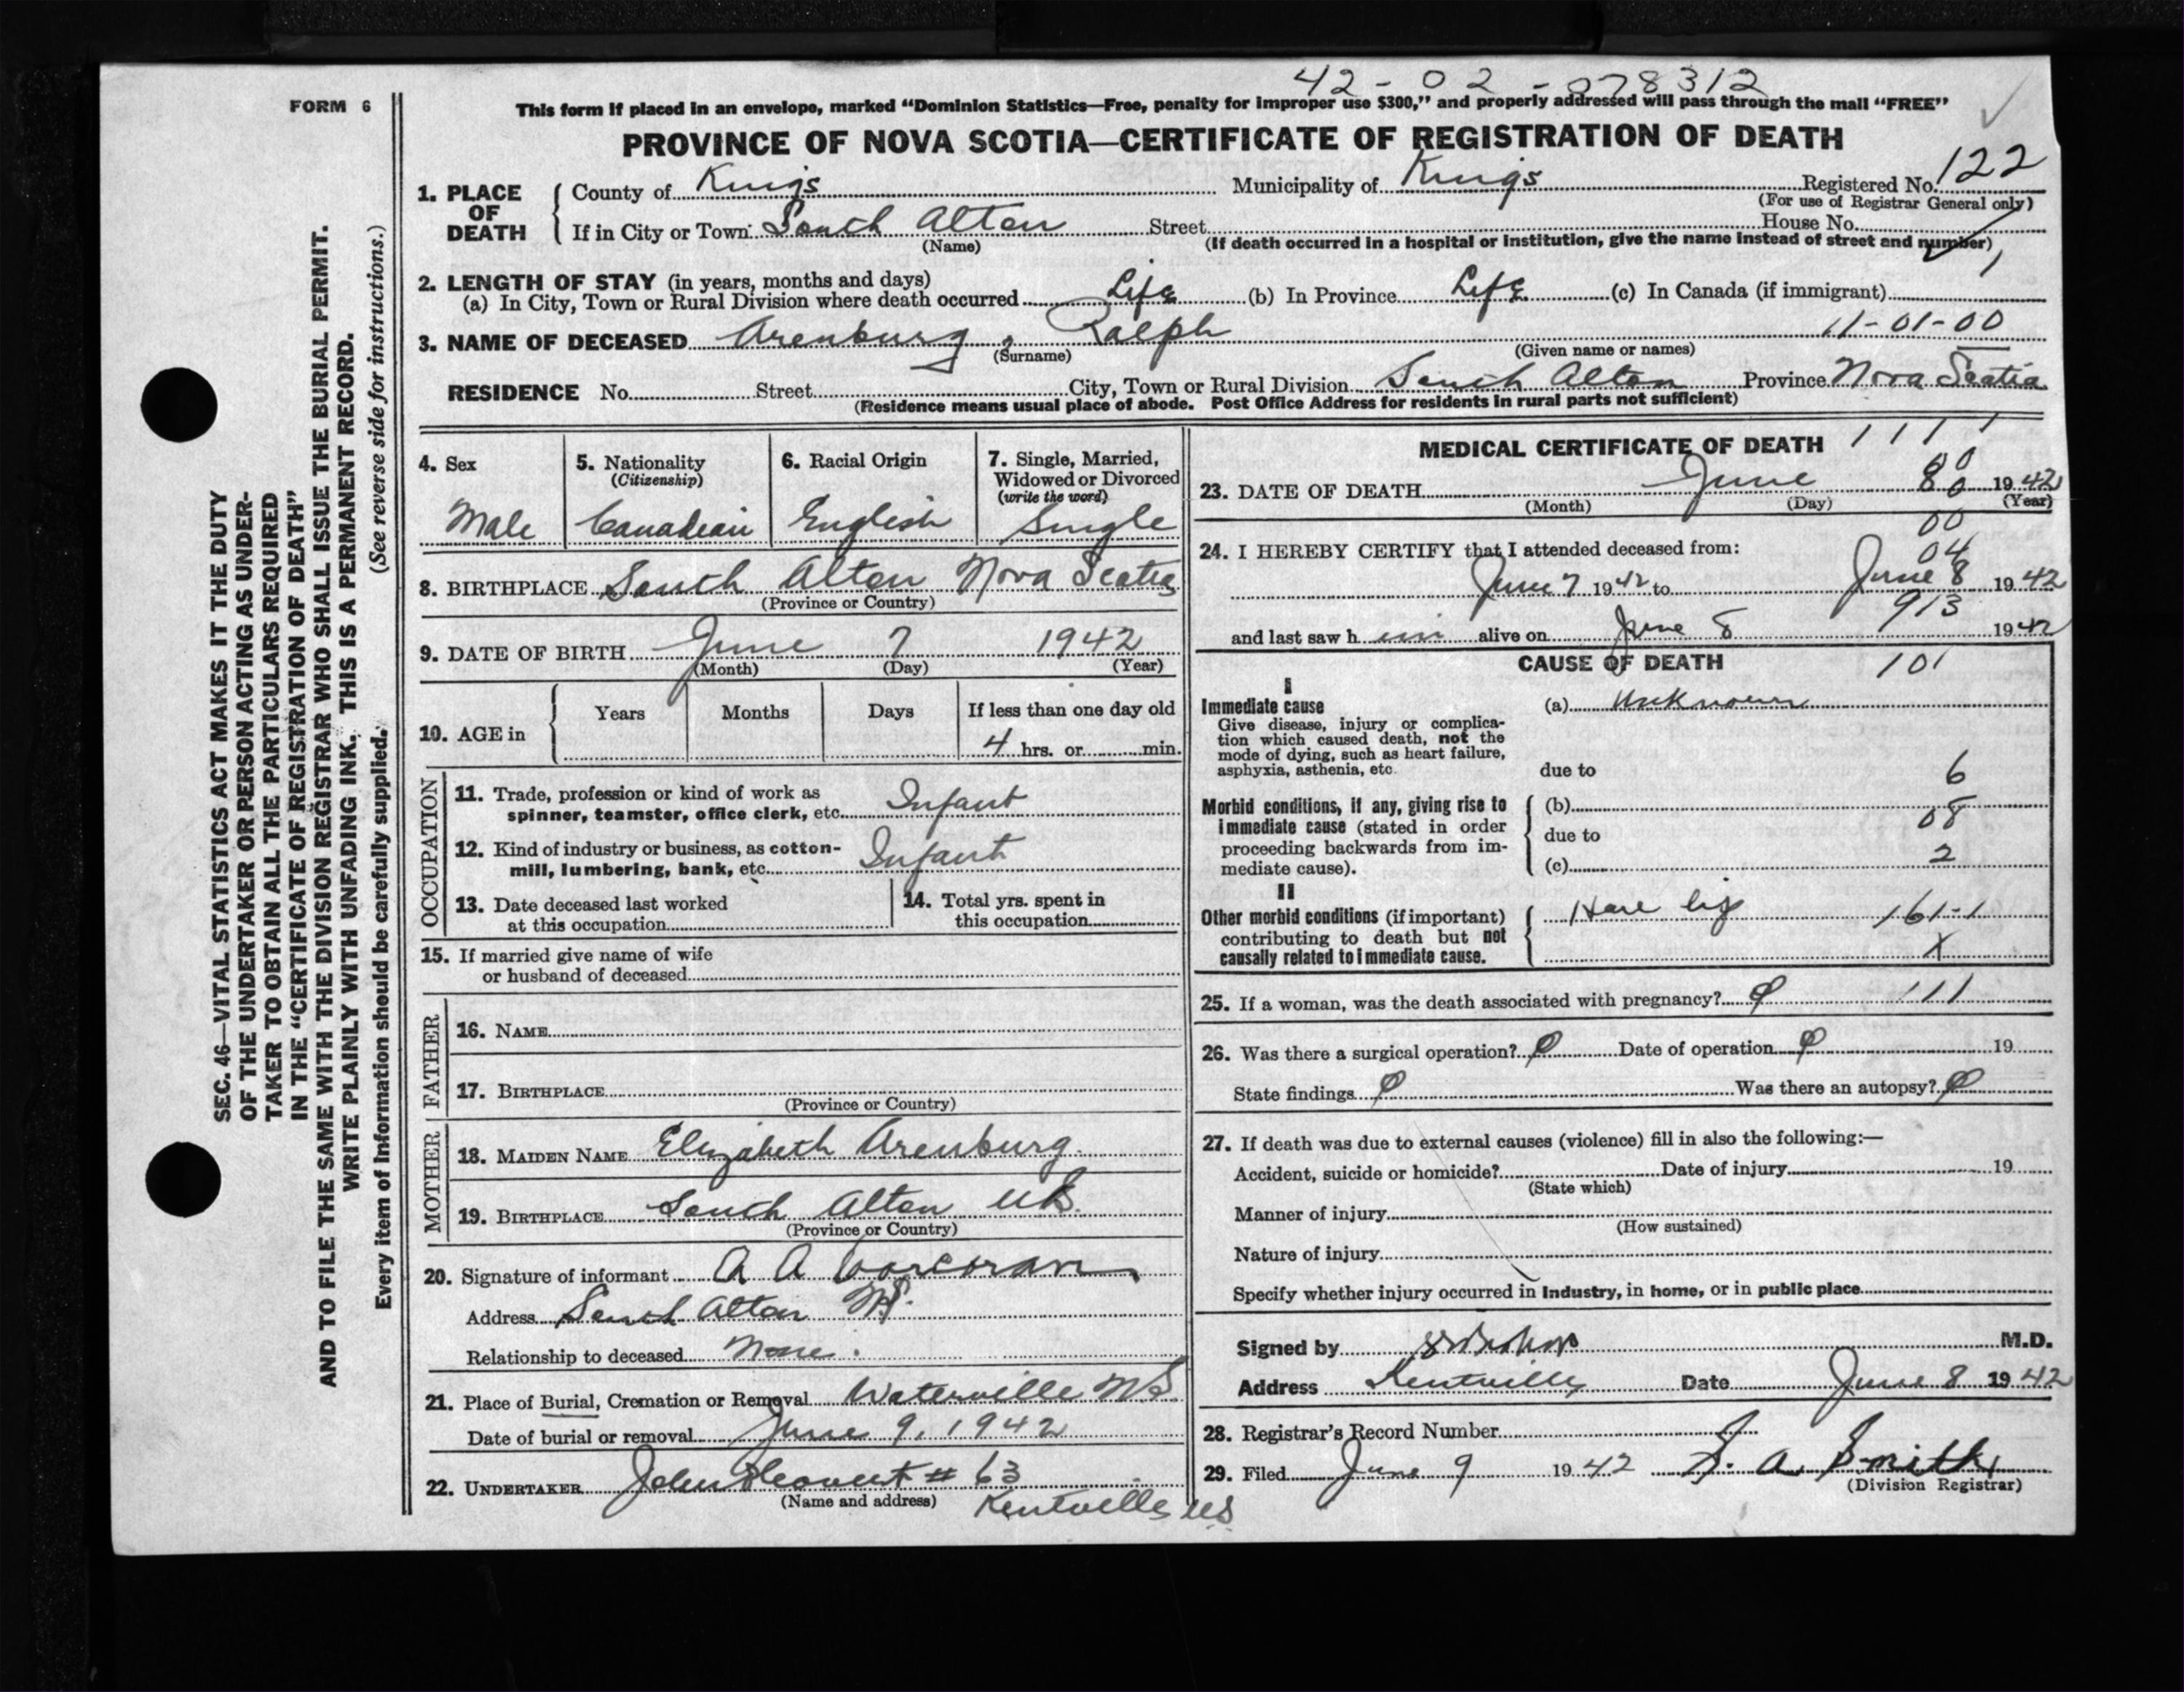 42-02-078312
FORM 6
This form if placed in an envelope, marked “Dominion Statistics—Free, penalty for improper use $300,” and properly addressed will pass through the mail “FREE”
PROVINCE OF NOVA SCOTIA—CERTIFICATE OF REGISTRATION OF DEATH
1. PLACE OF DEATH County of Kings Municipality of Kings Registered No. 122
(For use of Registrar General only)
If in City or Town South Alton Street House No.
(Name) (If death occurred in a hospital or institution, give the name instead of street and number)
2. LENGTH OF STAY (in years, months and days)
(a) In City, Town or Rural Division where death occurred Life (b) In Province Life (c) In Canada (if immigrant)
11-01-00
3. NAME OF DECEASED Arenburg, Ralph
(Surname) (Given name or names)
RESIDENCE No. Street City, Town or Rural Division South Alton Province Nova Scotia
(Residence means usual place of abode. Post Office Address for residents in rural parts not sufficient)
4. Sex Male
5. Nationality (Citizenship) Canadian
6. Racial Origin English
7. Single, Married, Widowed or Divorced (write the word) Single
8. BIRTHPLACE South Alton Nova Scotia
(Province or Country)
9. DATE OF BIRTH June 7 1942
(Month) (Day) (Year)
10. AGE in Years Months Days If less than one day old
4 hrs. or min.
OCCUPATION
11. Trade, profession or kind of work as
spinner, teamster, office clerk, etc. Infant
12. Kind of industry or business, as cotton-
mill, lumbering, bank, etc. Infant
13. Date deceased last worked
at this occupation
14. Total yrs. spent in
this occupation
15. If married give name of wife
or husband of deceased
FATHER
16. NAME
17. BIRTHPLACE
(Province or Country)
MOTHER
18. MAIDEN NAME Elizabeth Arenburg.
19. BIRTHPLACE South Alton NS.
(Province or Country)
20. Signature of informant A A Corcoran
Address South Alton NS.
Relationship to deceased None.
21. Place of Burial, Cremation or Removal Waterville NS.
Date of burial or removal June 9, 1942
22. UNDERTAKER John # 63
(Name and address) Kentville NS
MEDICAL CERTIFICATE OF DEATH 1111
23. DATE OF DEATH June 8 1942
(Month) (Day) (Year)
00
24. I HEREBY CERTIFY that I attended deceased from: 04
June 7 1942 to June 8 1942
913
and last saw h im alive on June 8 1942
CAUSE OF DEATH 101
I
Immediate cause
Give disease, injury or complica-
tion which caused death, not the
mode of dying, such as heart failure,
asphyxia, asthenia, etc.
(a) Unknown
due to 6
Morbid conditions, if any, giving rise to
immediate cause (stated in order
proceeding backwards from im-
mediate cause).
(b) 08
due to
(c) 2
II
Other morbid conditions (if important)
contributing to death but not
causally related to immediate cause.
Hare lip 161-1
X
25. If a woman, was the death associated with pregnancy? φ 111
26. Was there a surgical operation? φ Date of operation φ 19
State findings φ Was there an autopsy? φ
27. If death was due to external causes (violence) fill in also the following:—
Accident, suicide or homicide? Date of injury 19
(State which)
Manner of injury
(How sustained)
Nature of injury
Specify whether injury occurred in industry, in home, or in public place
Signed by M.D.
Address Kentville Date June 8 1942
28. Registrar's Record Number
29. Filed June 9 1942 S. A Smith
(Division Registrar)
SEC. 46—VITAL STATISTICS ACT MAKES IT THE DUTY
OF THE UNDERTAKER OR PERSON ACTING AS UNDER-
TAKER TO OBTAIN ALL THE PARTICULARS REQUIRED
IN THE “CERTIFICATE OF REGISTRATION OF DEATH”
AND TO FILE THE SAME WITH THE DIVISION REGISTRAR WHO SHALL ISSUE THE BURIAL PERMIT.
WRITE PLAINLY WITH UNFADING INK. THIS IS A PERMANENT RECORD.
Every item of information should be carefully supplied. (See reverse side for instructions.)